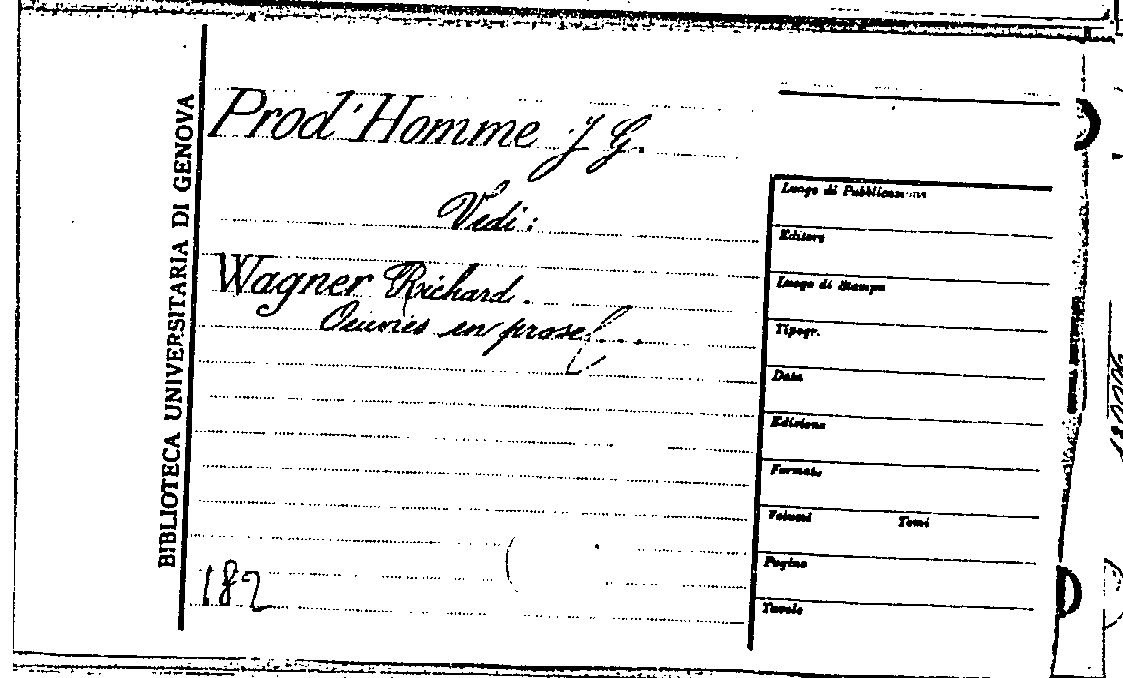 BIBLIOTECA UNIVERSITARIA DI GENOVA
Prod'Homme J. G.
Vedi:
Wagner Richard.
Oeuvres en prose...
182
Luogo di Pubblicazione
Editore
Luogo di Stampa
Tipogr.
Data
Edizione
Formato
Volumi Tomi
Pagine
Tavole